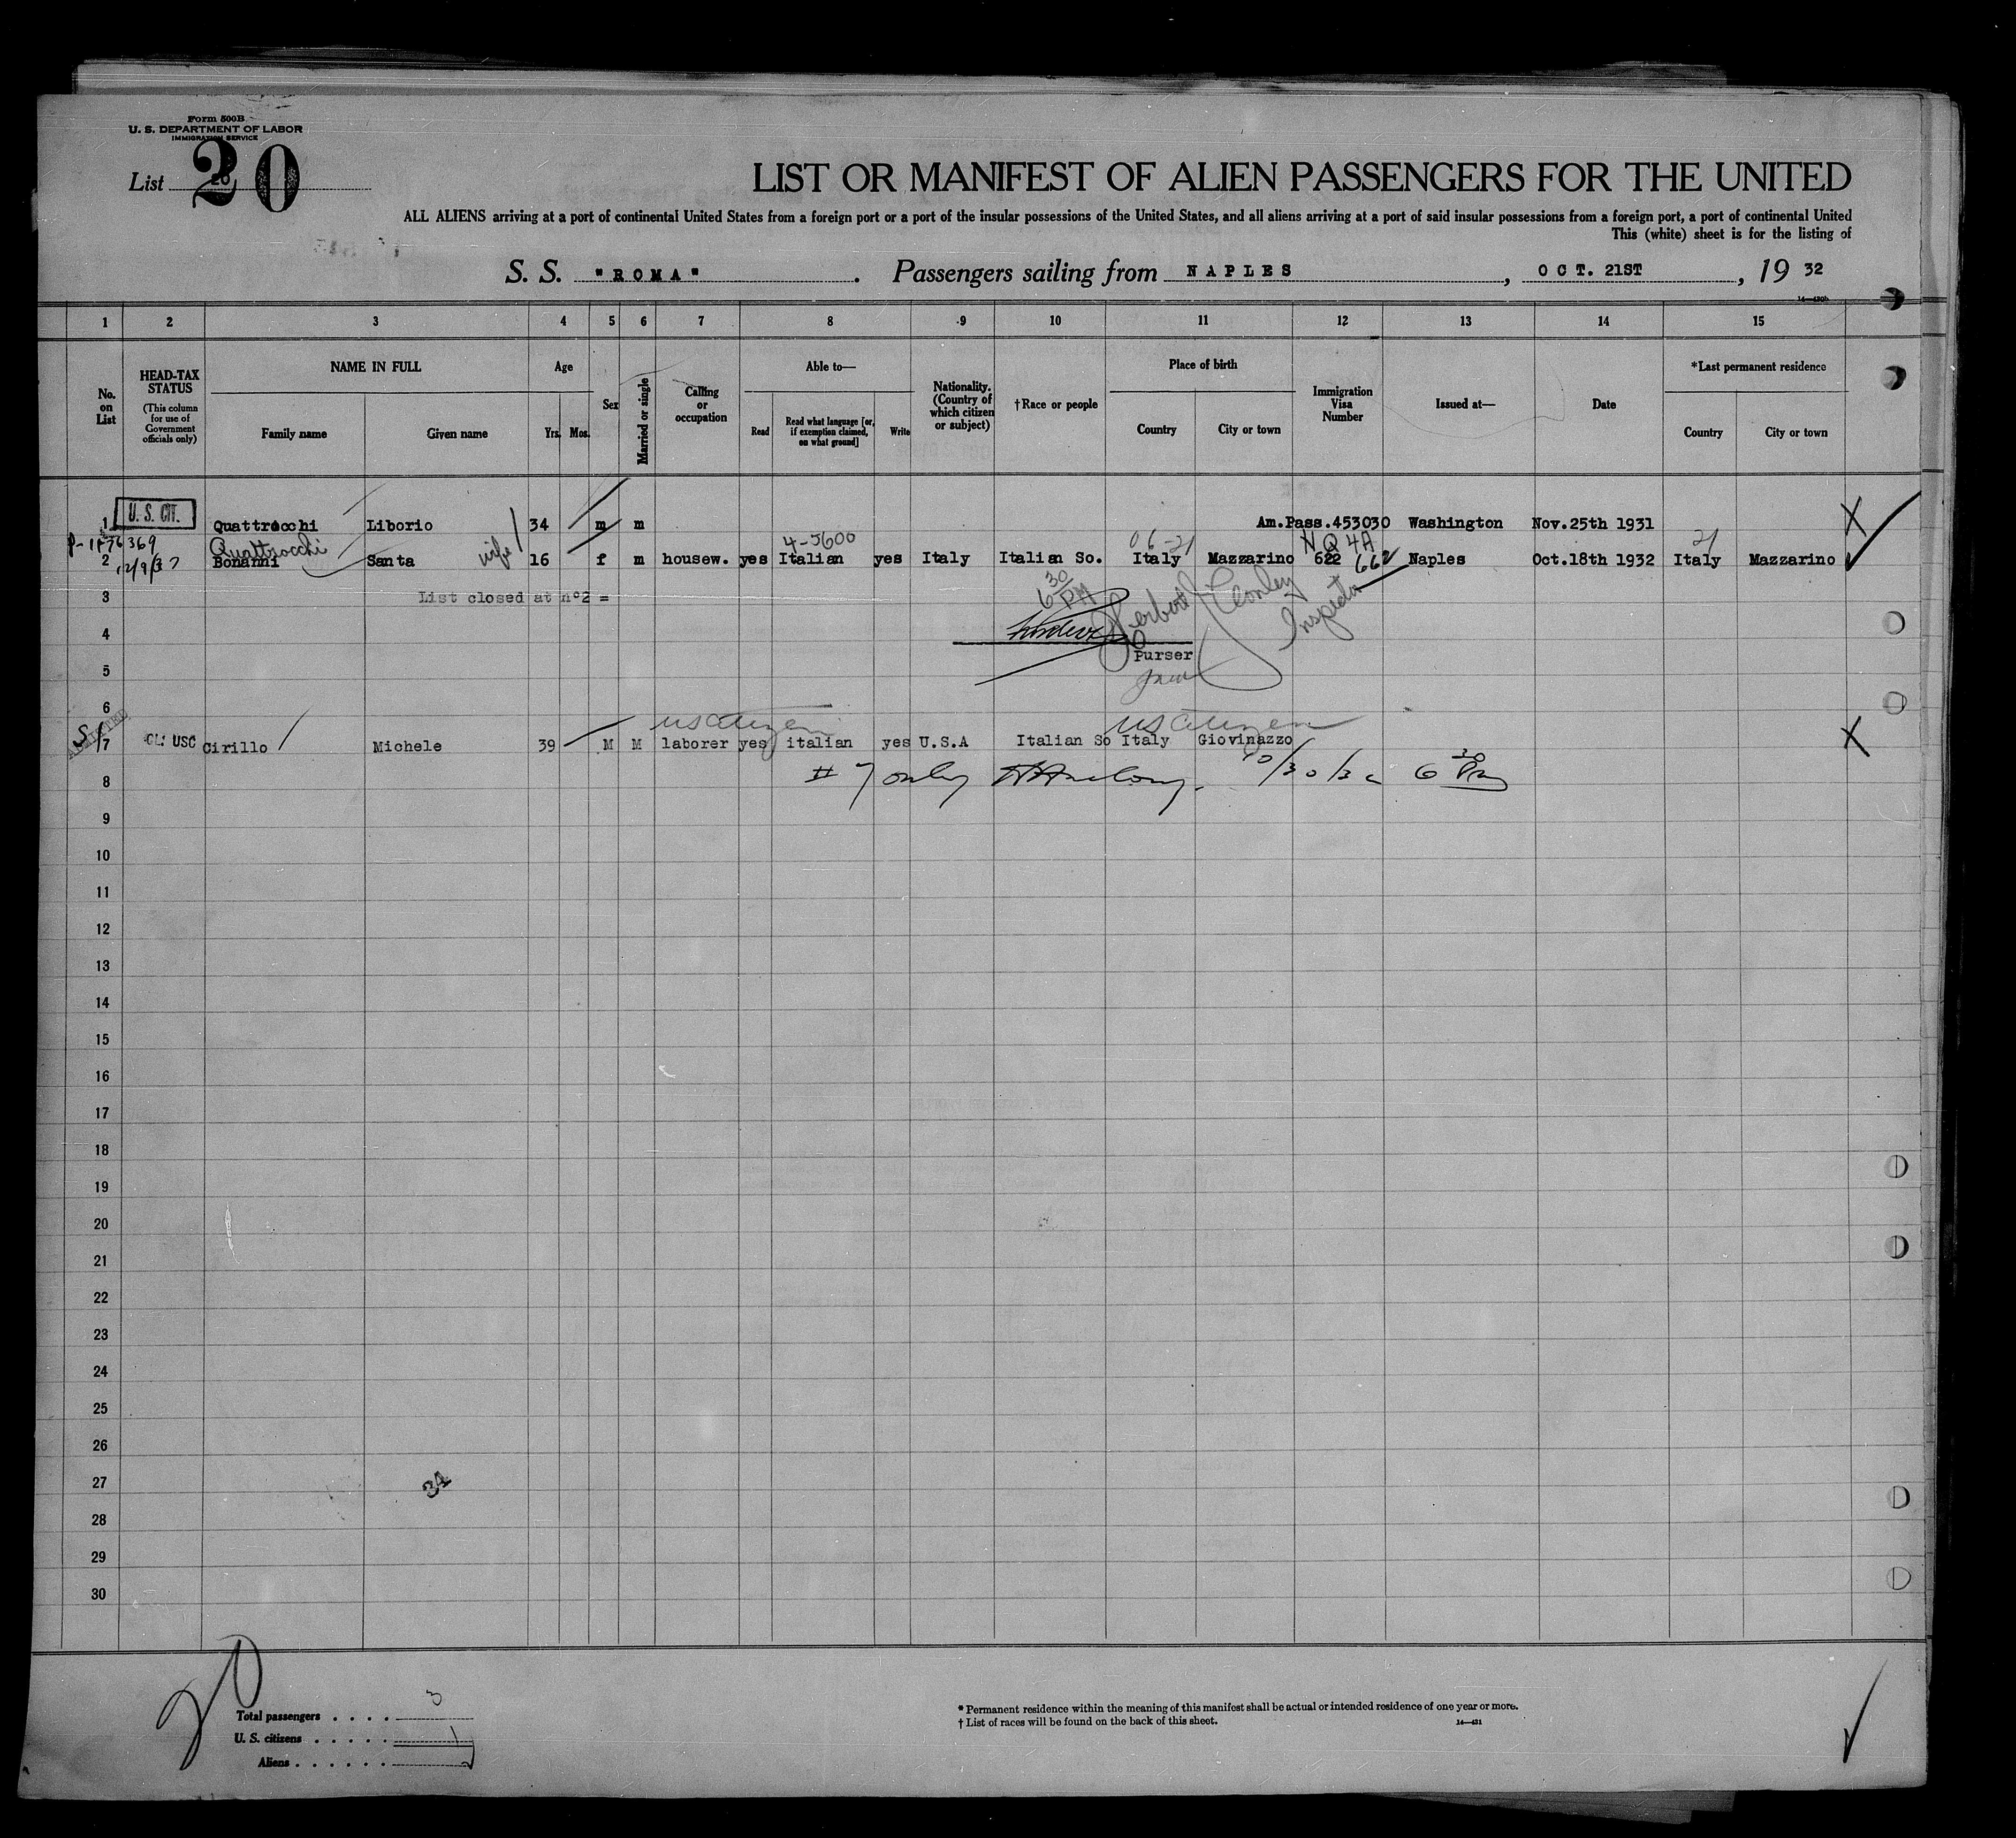 Form 500B
U. S. DEPARTMENT OF LABOR
IMMIGRATION SERVICE
List 20
20
LIST OR MANIFEST OF ALIEN PASSENGERS FOR THE UNITED
ALL ALIENS arriving at a port of continental United States from a foreign port or a port of the insular possessions of the United States, and all aliens arriving at a port of said insular possessions from a foreign port, a port of continental United
This (white) sheet is for the listing of
S. S. "ROMA". Passengers sailing from NAPLES, OCT. 21ST, 19 32
1 2 3 4 5 6 7 8 9 10 11 12 13 14 15
No. on List
HEAD-TAX STATUS (This column for use of Government officials only)
NAME IN FULL
Family name Given name
Age
Yrs. Mos.
Sex
Married or single
Calling or occupation
Able to—
Read Read what language [or, if exemption claimed, on what ground] Write
Nationality. (Country of which citizen or subject)
†Race or people
Place of birth
Country City or town
Immigration Visa Number
Issued at—
Date
*Last permanent residence
Country City or town
1 U. S. CIT. Quattrocchi Liborio 34 m m Am.Pass.453030 Washington Nov.25th 1931 X
Quattrocchi wife 4-5600 06-21 NQ4A 21
2 Bonanni Santa 16 f m housew. yes Italian yes Italy Italian So. Italy Mazzarino 622 662 Naples Oct.18th 1932 Italy Mazzarino
3 List closed at n°2 =
6 30 PM
Inspector
4
Purser
5
6
US Citizen US Citizen
7 CL: USC Cirillo Michele 39 M M laborer yes italian yes U.S.A Italian So Italy Giovinazzo X
8 # 7 only 10/30/32 6 30 PM
9
10
11
12
13
14
15
16
17
18
19
20
21
22
23
24
25
26
27
34
28
29
30
20
Total passengers . . . . 3
U. S. citizens . . . . . 1
Aliens . . . . . . 2
* Permanent residence within the meaning of this manifest shall be actual or intended residence of one year or more.
† List of races will be found on the back of this sheet.
14—431